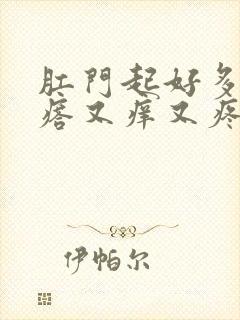 肛門起好多
瘩又痒又疼
伊帕尔